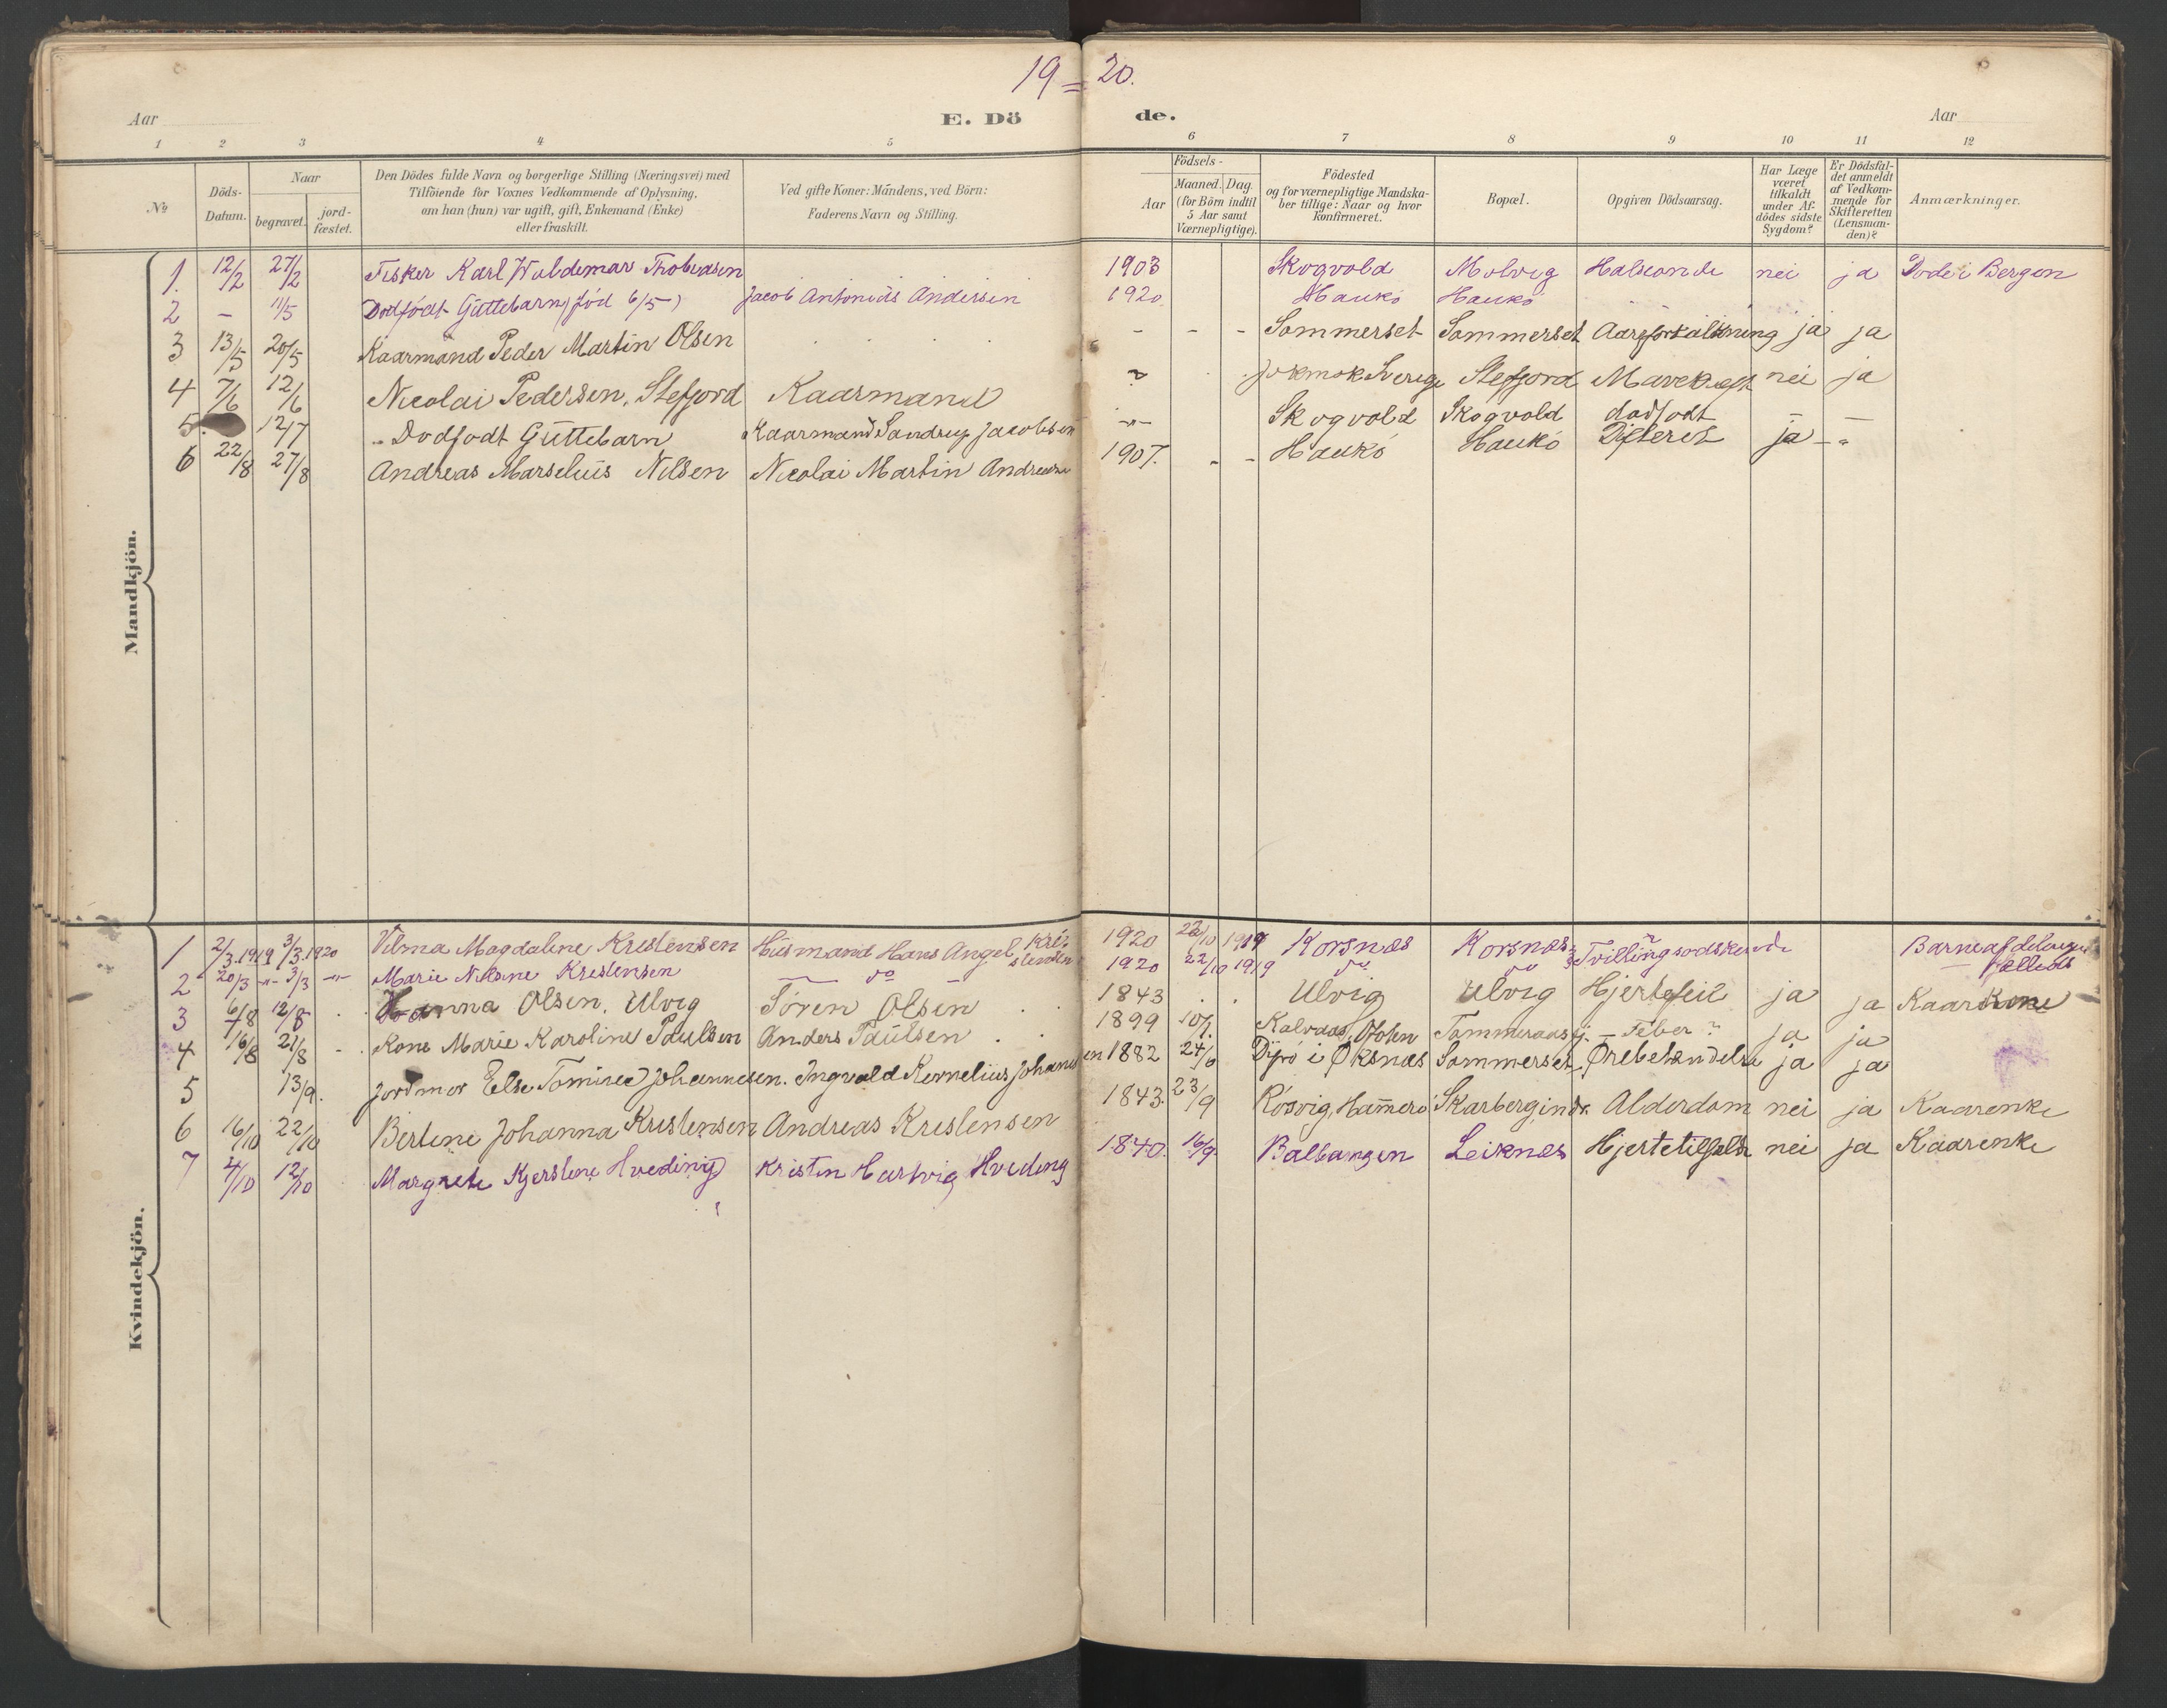 19 = 20.
Aar E. Dö de. Aar
1 2 3 4 5 6 7 8 9 10 11 12
№
Döds-Datum.
Naar
begravet.
jord-fæstet.
Den Dödes fulde Navn og borgerlige Stilling (Næringsvei) med
Tilföiende for Voxnes Vedkommende af Oplysning,
om han (hun) var ugift, gift, Enkemand (Enke)
eller fraskilt.
Ved gifte Koner: Mandens, ved Börn:
Faderens Navn og Stilling.
Födsels-
Aar
Maaned. Dag.
(for Börn indtil
5 Aar samt
Værnepligtige).
Födested
og for værnepligtige Mandska-
ber tillige: Naar og hvor
Konfirmeret.
Bopæl.
Opgiven Dödsaarsag.
Har Læge
været
tilkaldt
under Af-
dödes sidste
Sygdom?
Er Dödsfal-
det anmeldt
af Vedkom-
mende for
Skifteretten
(Lensman-
den)?
Anmærkninger.
Mandkjön.
1. 12/2 27/2 Fisker Karl Waldemar Thobiasen 1903 Skogvold Molvig nei ja Døde i Bergen
2 - 11/5 Dødfødt Guttebarn, (fød 6/5-) Jacob Antonius Andersen 1920 Haukø Haukø
3 13/5 20/5 Kaarmand Peder Martin Olsen - - - Sommerset Sommerset Aareforkalkning ja ja
4 7/6 12/6 Nicolai Pedersen, Stefjord Kaarmand ? Jokmok Sverige Stefjord nei ja
5. 12/7 Dødfødt Guttebarn Kaarmand Sandrup Jacobsen -"- Skogvold Skogvold dødfødt - -
6 22/8 27/8 Andreas Marselius Nilsen Nicolai Martin Andreas 1907. - - Haukø Haukø Difterit ja - "
Kvindekjön.
1 2/3 1919 3/3 1920 Vilma Magdaline Kristensen Husmand Hans Angel Kristensen 1920 22/10 1919 Korsnæs Korsnæs
2 20/3 -"- 3/3 -"- Marie Nilsine Kristensen do 1920 22/10 1919 do do
3 6/8 12/8 Hanna Olsen, Ulvig Søren Olsen 1843 Ulvig Ulvig Hjertefeil ja ja Kaarkone
4 16/8 21/8 Kone Marie Karoline Paulsen Anders Paulsen 1899 10/7. Feber ? ja ja
5 13/9. Jordmor Else Johannesen. Ingvald Kornelius Johansen 1882 24/6 i Øksnæs Sommerset ja ja
6 16/10 22/10 Bertine Johanna Kristensen Andreas Kristensen 1843. 23/9 Rosvig, Hamerø Alderdom nei ja Kaarenke
7 4/10 12/10 Margrete Kjerstine Hveding Kristen Hartvig Hveding 1840. 16/9 Ballangen Leiknes nei ja Kaarenke